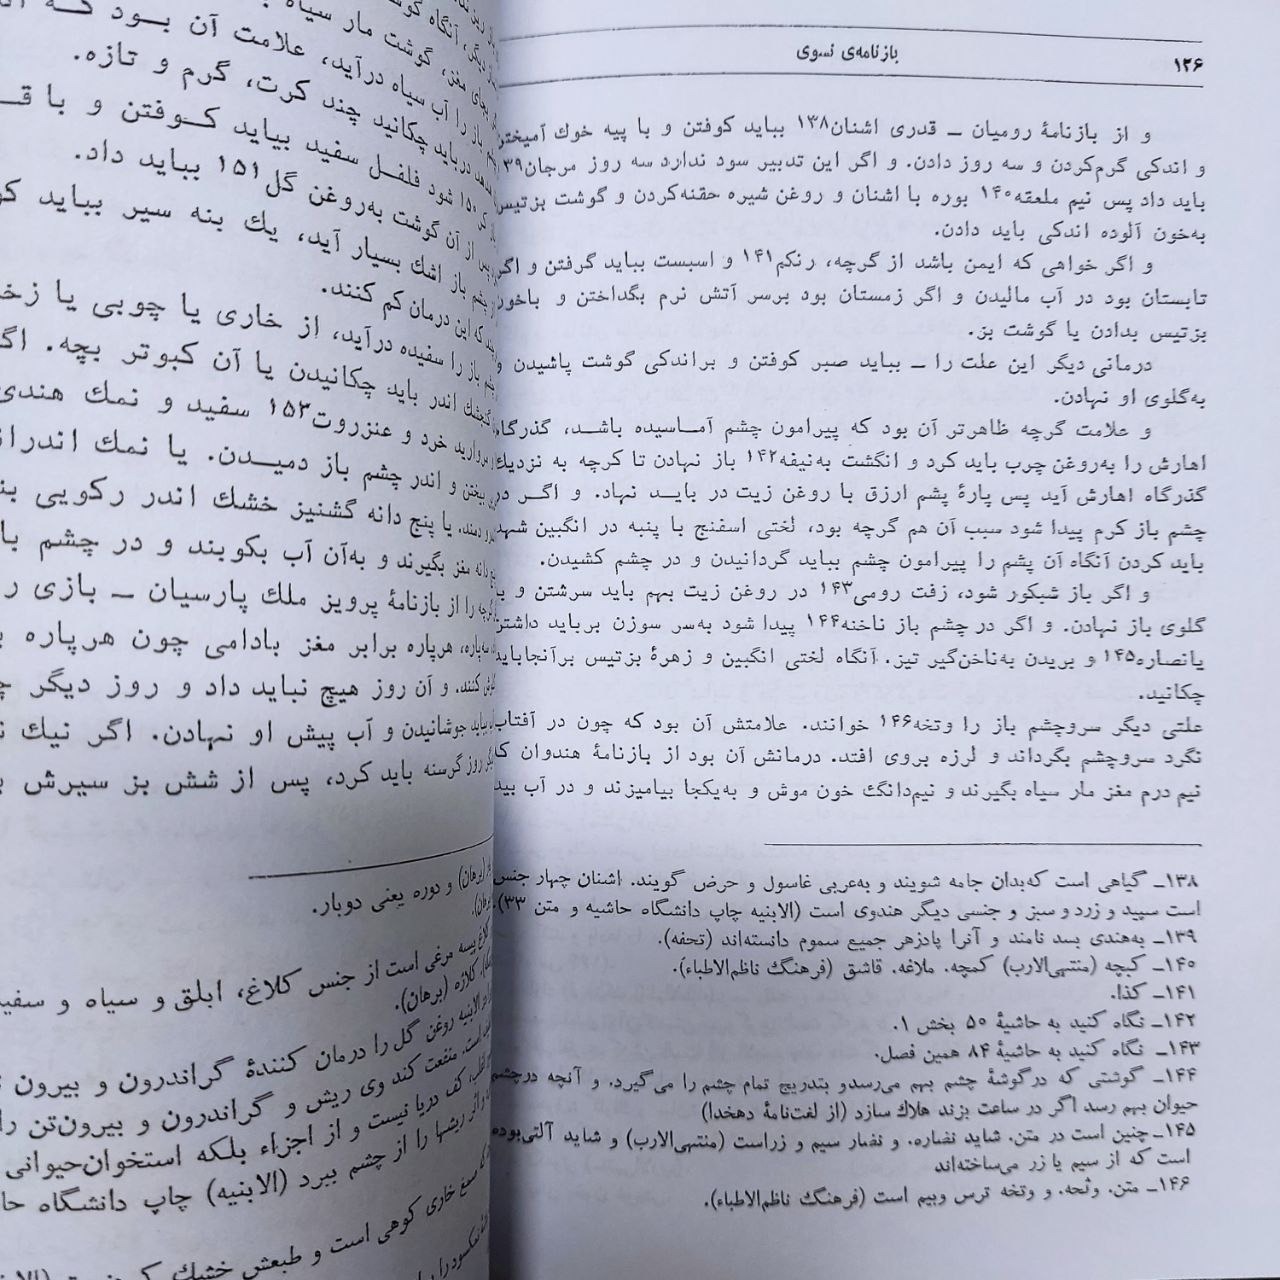 ۱۲۶
بازنامه‌ی نسوی
و از بازنامهٔ رومیان ــ قدری اشنان۱۳۸ بباید کوفتن و با پیه خوك آمیختن
و اندکی گرم‌کردن و سه روز دادن. و اگر این تدبیر سود ندارد سه روز مرجان۱۳۹
باید داد پس نیم ملعقه۱۴۰ بوره با اشنان و روغن شیره حقنه‌کردن و گوشت بزتیس
به‌خون آلوده اندکی باید دادن.
و اگر خواهی که ایمن باشد از گرچه، رنکم۱۴۱ و اسبست بباید گرفتن و اگر
تابستان بود در آب مالیدن و اگر زمستان بود برسر آتش نرم بگداختن و باخون
بزتیس بدادن یا گوشت بز.
درمانی دیگر این علت را ــ بباید صبر کوفتن و براندکی گوشت پاشیدن و
به‌گلوی او نهادن.
و علامت گرچه ظاهرتر آن بود که پیرامون چشم آماسیده باشد، گذرگاه
اهارش را به‌روغن چرب باید کرد و انگشت به‌نیفه۱۴۲ باز نهادن تا کرچه به نزدیك
گذرگاه اهارش آید پس پارهٔ پشم ارزق با روغن زیت در باید نهاد. و اگر در
چشم باز کرم پیدا شود سبب آن هم گرچه بود، لختی اسفنج با پنبه در انگبین شهد
باید کردن آنگاه آن پشم را پیرامون چشم بباید گردانیدن و در چشم کشیدن.
و اگر باز شبکور شود، زفت رومی۱۴۳ در روغن زیت بهم باید سرشتن و با
گلوی باز نهادن. و اگر در چشم باز ناخنه۱۴۴ پیدا شود به‌سر سوزن برباید داشتن
یانصاره۱۴۵ و بریدن به‌ناخن‌گیر تیز. آنگاه لختی انگبین و زهرهٔ بزتیس برآنجاباید
چکانید.
علتی دیگر سروچشم باز را وتخه۱۴۶ خوانند. علامتش آن بود که چون در آفتاب
نگرد سروچشم بگرداند و لرزه بروی افتد. درمانش آن بود از بازنامهٔ هندوان که
نیم درم مغز مار سیاه بگیرند و نیم‌دانگ خون موش و به‌یکجا بیامیزند و در آب بید
۱۳۸ــ گیاهی است که‌بدان جامه شویند و به‌عربی غاسول و حرض گویند. اشنان چهار جنس
است سپید و زرد و سبز و جنسی دیگر هندوی است (الابنیه چاپ دانشگاه حاشیه و متن ۳۳).
۱۳۹ــ به‌هندی بسد نامند و آنرا پادزهر جمیع سموم دانسته‌اند (تحفه).
۱۴۰ــ کبچه (منتهی‌الارب) کمچه. ملاغه. قاشق (فرهنگ ناظم‌الاطباء).
۱۴۱ــ کذا.
۱۴۲ــ نگاه کنید به حاشیهٔ ۵۰ بخش ۱.
۱۴۳ــ نگاه کنید به حاشیهٔ ۸۴ همین فصل.
۱۴۴ــ گوشتی که درگوشهٔ چشم بهم می‌رسدو بتدریج تمام چشم را می‌گیرد. و آنچه درچشم
حیوان بهم رسد اگر در ساعت بزند هلاك سازد (از لغت‌نامهٔ دهخدا)
۱۴۵ــ چنین است در متن. شاید نضاره. و نضار سیم و زراست (منتهی‌الارب) و شاید آلتی‌بوده
است که از سیم یا زر می‌ساخته‌اند
۱۴۶ــ متن. وثحه. و وتخه ترس وبیم است (فرهنگ ناظم‌الاطباء).
گوشت مار سیاه
را آب سیاه درآید، علامت آن بود که
درباید چکانید چند کرت، گرم و تازه.
شود فلفل سفید بباید کوفتن و با
از آن گوشت به‌روغن گل۱۵۱ بباید داد.
چشم باز اشك بسیار آید، یك بنه سیر بباید
که این درمان کم کنند.
چشم باز را سفیده درآید، از خاری یا چوبی یا
اندر باید چکانیدن یا آن کبوتر بچه.
مروارید خرد و عنزروت۱۵۳ سفید و نمك هندی
بیختن و اندر چشم باز دمیدن. یا نمك
دمند. یا پنج دانه گشنیز خشك اندر رکویی
دانه مغز بگیرند و به‌آن آب بکوبند و در چشم
را از بازنامهٔ پرویز ملك پارسیان ــ بازی
هرپاره برابر مغز بادامی چون هرپاره
کنند. و آن روز هیچ نباید داد و روز دیگر
بباید جوشانیدن و آب پیش او نهادن. اگر نیك
روز گرسنه باید کرد، پس از شش بز سیرش
(برهان) و دوره یعنی دوبار.
پیسه مرغی است از جنس کلاغ، ابلق و سیاه و
کلاژه (برهان).
الابنیه روغن گل را درمان کنندهٔ گراندرون و بیرون
است. منفعت کند وی ریش و گراندرون و بیرون‌تن
کف دریا نیست و از اجزاء بلکه استخوان‌حیوانی
ریشها را از چشم ببرد (الابنیه) چاپ دانشگاه
صمغ خاری کوهی است و طبعش خشك